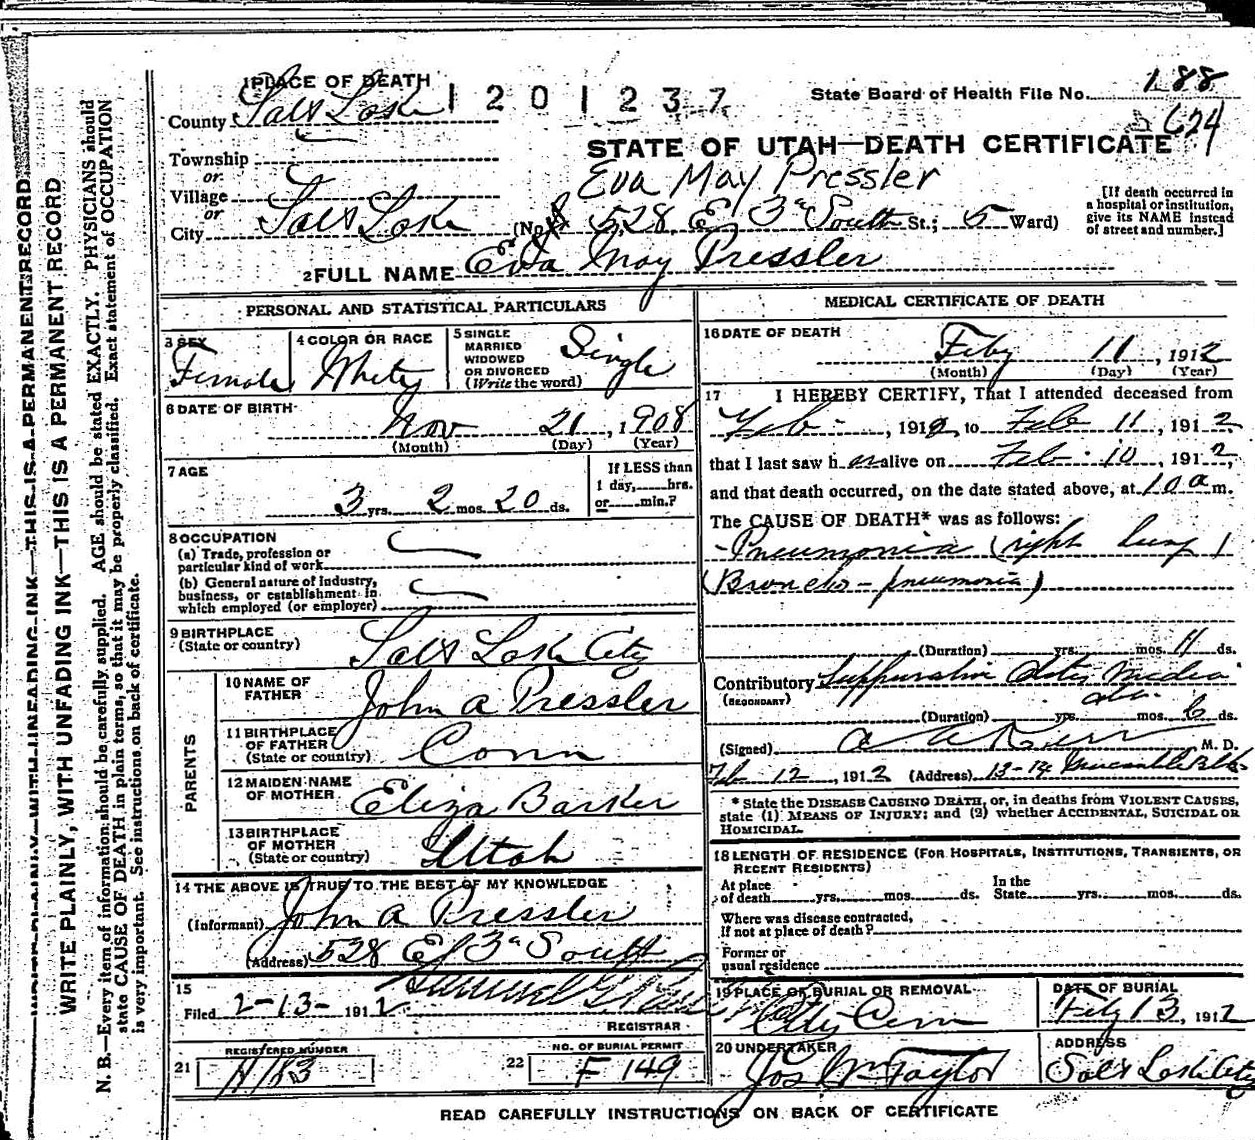 1 PLACE OF DEATH
1201237
State Board of Health File No. 188
624
County Salt Lake
STATE OF UTAH—DEATH CERTIFICATE
Township
or
Village
or
City Salt Lake
Eva May Pressler
(No. 528 E 3rd South St.; 5 Ward)
[If death occurred in
a hospital or institution,
give its NAME instead
of street and number.]
2 FULL NAME Eva May Pressler
PERSONAL AND STATISTICAL PARTICULARS
3 SEX
Female
4 COLOR OR RACE
White
5 SINGLE
MARRIED
WIDOWED
OR DIVORCED
(Write the word)
Single
6 DATE OF BIRTH
Nov 21, 1908
(Month) (Day) (Year)
7 AGE
3 yrs. 2 mos. 20 ds.
If LESS than
1 day, hrs.
or min.?
8 OCCUPATION
(a) Trade, profession or
particular kind of work
(b) General nature of industry,
business, or establishment in
which employed (or employer)
9 BIRTHPLACE
(State or country)
Salt Lake City
PARENTS
10 NAME OF
FATHER
John A Pressler
11 BIRTHPLACE
OF FATHER
(State or country)
Conn
12 MAIDEN NAME
OF MOTHER
Eliza Barker
13 BIRTHPLACE
OF MOTHER
(State or country)
Utah
14 THE ABOVE IS TRUE TO THE BEST OF MY KNOWLEDGE
(Informant) John A Pressler
(Address) 528 E 3rd South
15
Filed 2-13-1912
Samuel G.
REGISTRAR
21
REGISTERED NUMBER
22
NO. OF BURIAL PERMIT
F 149
MEDICAL CERTIFICATE OF DEATH
16 DATE OF DEATH
Feby 11, 1912
(Month) (Day) (Year)
17 I HEREBY CERTIFY, That I attended deceased from
Feb , 1912, to Feb 11, 1912
that I last saw her alive on Feb. 10, 1912,
and that death occurred, on the date stated above, at 10 a m.
The CAUSE OF DEATH* was as follows:
Pneumonia (right lung)
(Broncho-pneumonia)
(Duration) yrs. mos. 11 ds.
Contributory Suppurative Otitis Media
(SECONDARY)
(Duration) yrs. mos. 6 ds.
(Signed) A A Kerr M. D.
Feb 12, 1912 (Address) 13-14 Mercantile Blk
* State the DISEASE CAUSING DEATH, or, in deaths from VIOLENT CAUSES,
state (1) MEANS OF INJURY; and (2) whether ACCIDENTAL, SUICIDAL OR
HOMICIDAL.
18 LENGTH OF RESIDENCE (FOR HOSPITALS, INSTITUTIONS, TRANSIENTS, OR
RECENT RESIDENTS)
At place
of death yrs. mos. ds.
In the
State yrs. mos. ds.
Where was disease contracted,
If not at place of death?
Former or
usual residence
19 PLACE OF BURIAL OR REMOVAL
City Cem
DATE OF BURIAL
Feby 13, 1912
20 UNDERTAKER
Jos Wm Taylor
ADDRESS
Salt Lake City
READ CAREFULLY INSTRUCTIONS ON BACK OF CERTIFICATE
WRITE PLAINLY, WITH UNFADING INK—THIS IS A PERMANENT RECORD
WRITE PLAINLY, WITH UNFADING INK—THIS IS A PERMANENT RECORD
N. B.—Every item of information should be carefully supplied. AGE should be stated EXACTLY. PHYSICIANS should
state CAUSE OF DEATH in plain terms, so that it may be properly classified. Exact statement of OCCUPATION
is very important. See instructions on back of certificate.